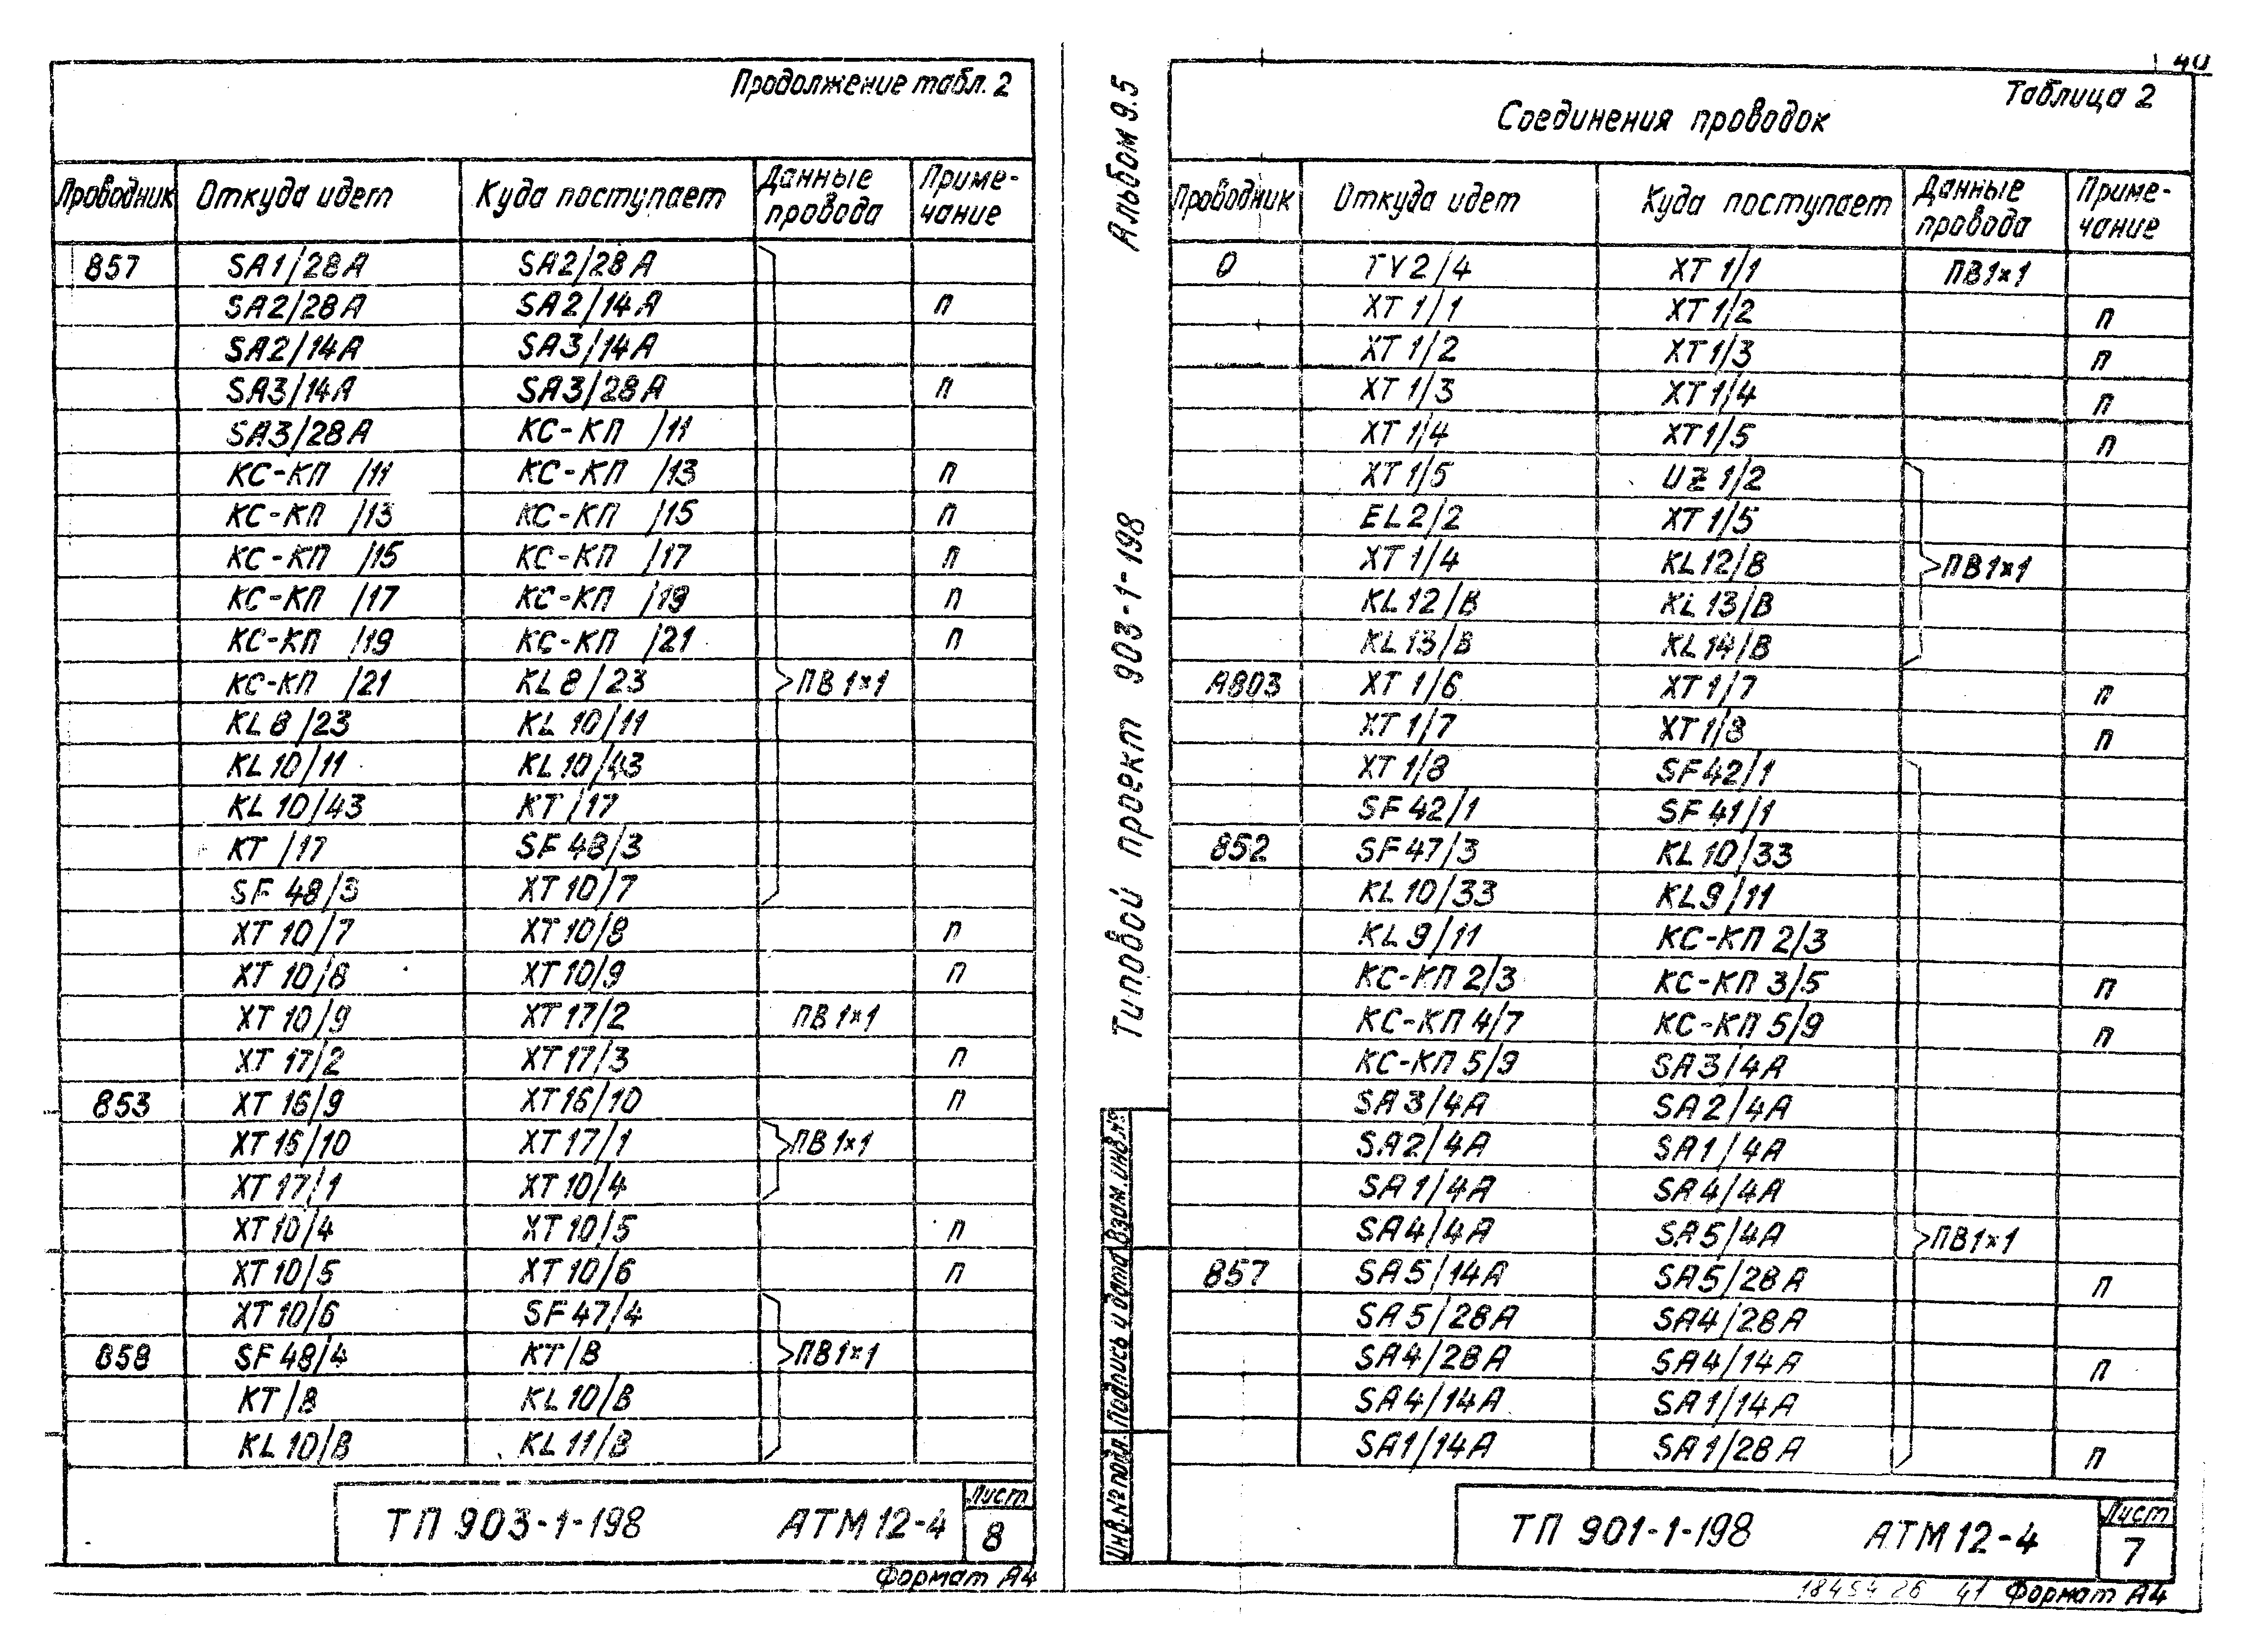 Продолжение табл. 2
Проводник Откуда идет Куда поступает Данные провода Приме-чание
857 SA1/28A SA2/28A
SA2/28A SA2/14A п
SA2/14A SA3/14A
SA3/14A SA3/28A п
SA3/28A КС-КП /11
КС-КП /11 КС-КП /13 п
КС-КП /13 КС-КП /15 п
КС-КП /15 КС-КП /17 п
КС-КП /17 КС-КП /19 п
КС-КП /19 КС-КП /21 п
КС-КП /21 KL8/23 ПВ1×1
KL8/23 KL10/11
KL10/11 KL10/43
KL10/43 KT/17
KT/17 SF48/3
SF48/3 XT10/7
XT10/7 XT10/8 п
XT10/8 XT10/9 п
XT10/9 XT17/2 ПВ1×1
XT17/2 XT17/3 п
853 XT16/9 XT16/10 п
XT16/10 XT17/1 ПВ1×1
XT17/1 XT10/4
XT10/4 XT10/5 п
XT10/5 XT10/6 п
XT10/6 SF47/4
858 SF48/4 KT/B ПВ1×1
KT/B KL10/B
KL10/B KL11/B
ТП 903-1-198 АТМ12-4 Лист 8
Формат А4
Альбом 9.5
Типовой проект 903-1-198
Взам. инв. №
Подпись и дата
Инв. № подл.
40
Таблица 2
Соединения проводок
Проводник Откуда идет Куда поступает Данные провода Приме-чание
0 TV2/4 XT1/1 ПВ1×1
XT1/1 XT1/2 п
XT1/2 XT1/3 п
XT1/3 XT1/4 п
XT1/4 XT1/5 п
XT1/5 UZ1/2
EL2/2 XT1/5
XT1/4 KL12/B ПВ1×1
KL12/B KL13/B
KL13/B KL14/B
А803 XT1/6 XT1/7 п
XT1/7 XT1/8 п
XT1/8 SF42/1
SF42/1 SF41/1
852 SF47/3 KL10/33
KL10/33 KL9/11
KL9/11 КС-КП 2/3
КС-КП 2/3 КС-КП 3/5 п
КС-КП 4/7 КС-КП 5/9 п
КС-КП 5/9 SA3/4A
SA3/4A SA2/4A
SA2/4A SA1/4A
SA1/4A SA4/4A
SA4/4A SA5/4A ПВ1×1
857 SA5/14A SA5/28A п
SA5/28A SA4/28A
SA4/28A SA4/14A п
SA4/14A SA1/14A
SA1/14A SA1/28A п
ТП 901-1-198 АТМ12-4 Лист 7
18454 26 41 Формат А4